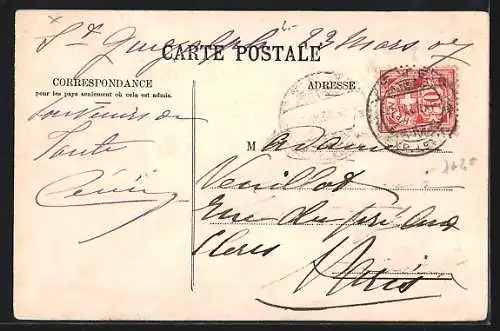 St Gingolph 23 Mars 07
CARTE POSTALE
CORRESPONDANCE
pour les pays seulement où cela est admis.
ADRESSE
Souvenirs de
Toute
M adame
Veuillot
Rue du Pré aux
Clercs
Paris
10